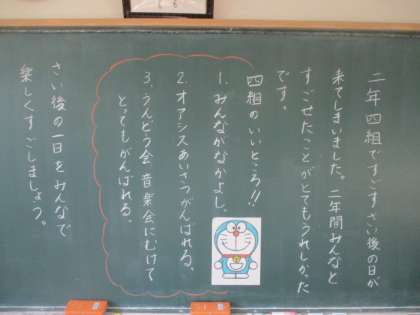 二年四組ですごすさい後の日が
来てしまいました。二年間みんなと
すごせたことがとてもうれしかった
です。
四組のいいところ!!
1、みんながなかよし。
2、オアシスあいさつがんばれる。
3、うんどう会 音楽会にむけて
とってもがんばれる。
さい後の一日をみんなで
楽しくすごしましょう。